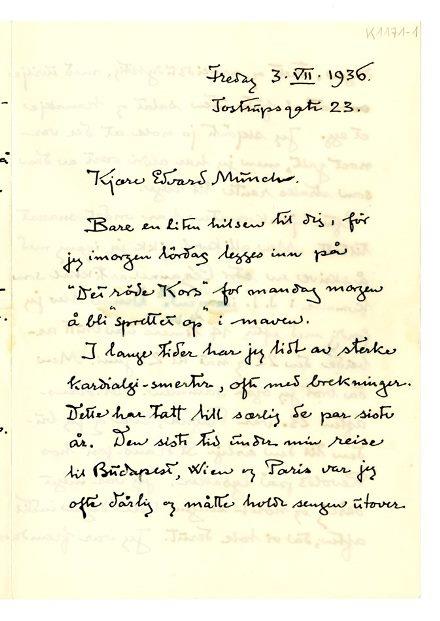 K1171-1
Fredag 3. VII. 1936.
Tostrupsgate 23.
Kjære Edvard Munch.
Bare en liten hilsen til dig, før
jeg imorgen lördag legges inn på
"Det röde Kors" for mandag morgen
å bli "sprettet op" i maven.
I lange tider har jeg lidt av sterke
kardialgi-smerter, ofte med brekninger.
Dette har tatt till særlig de par siste
år. Den siste tid under min reise
til Budapest, Wien og Paris var jeg
ofte dårlig og måtte holde sengen utover